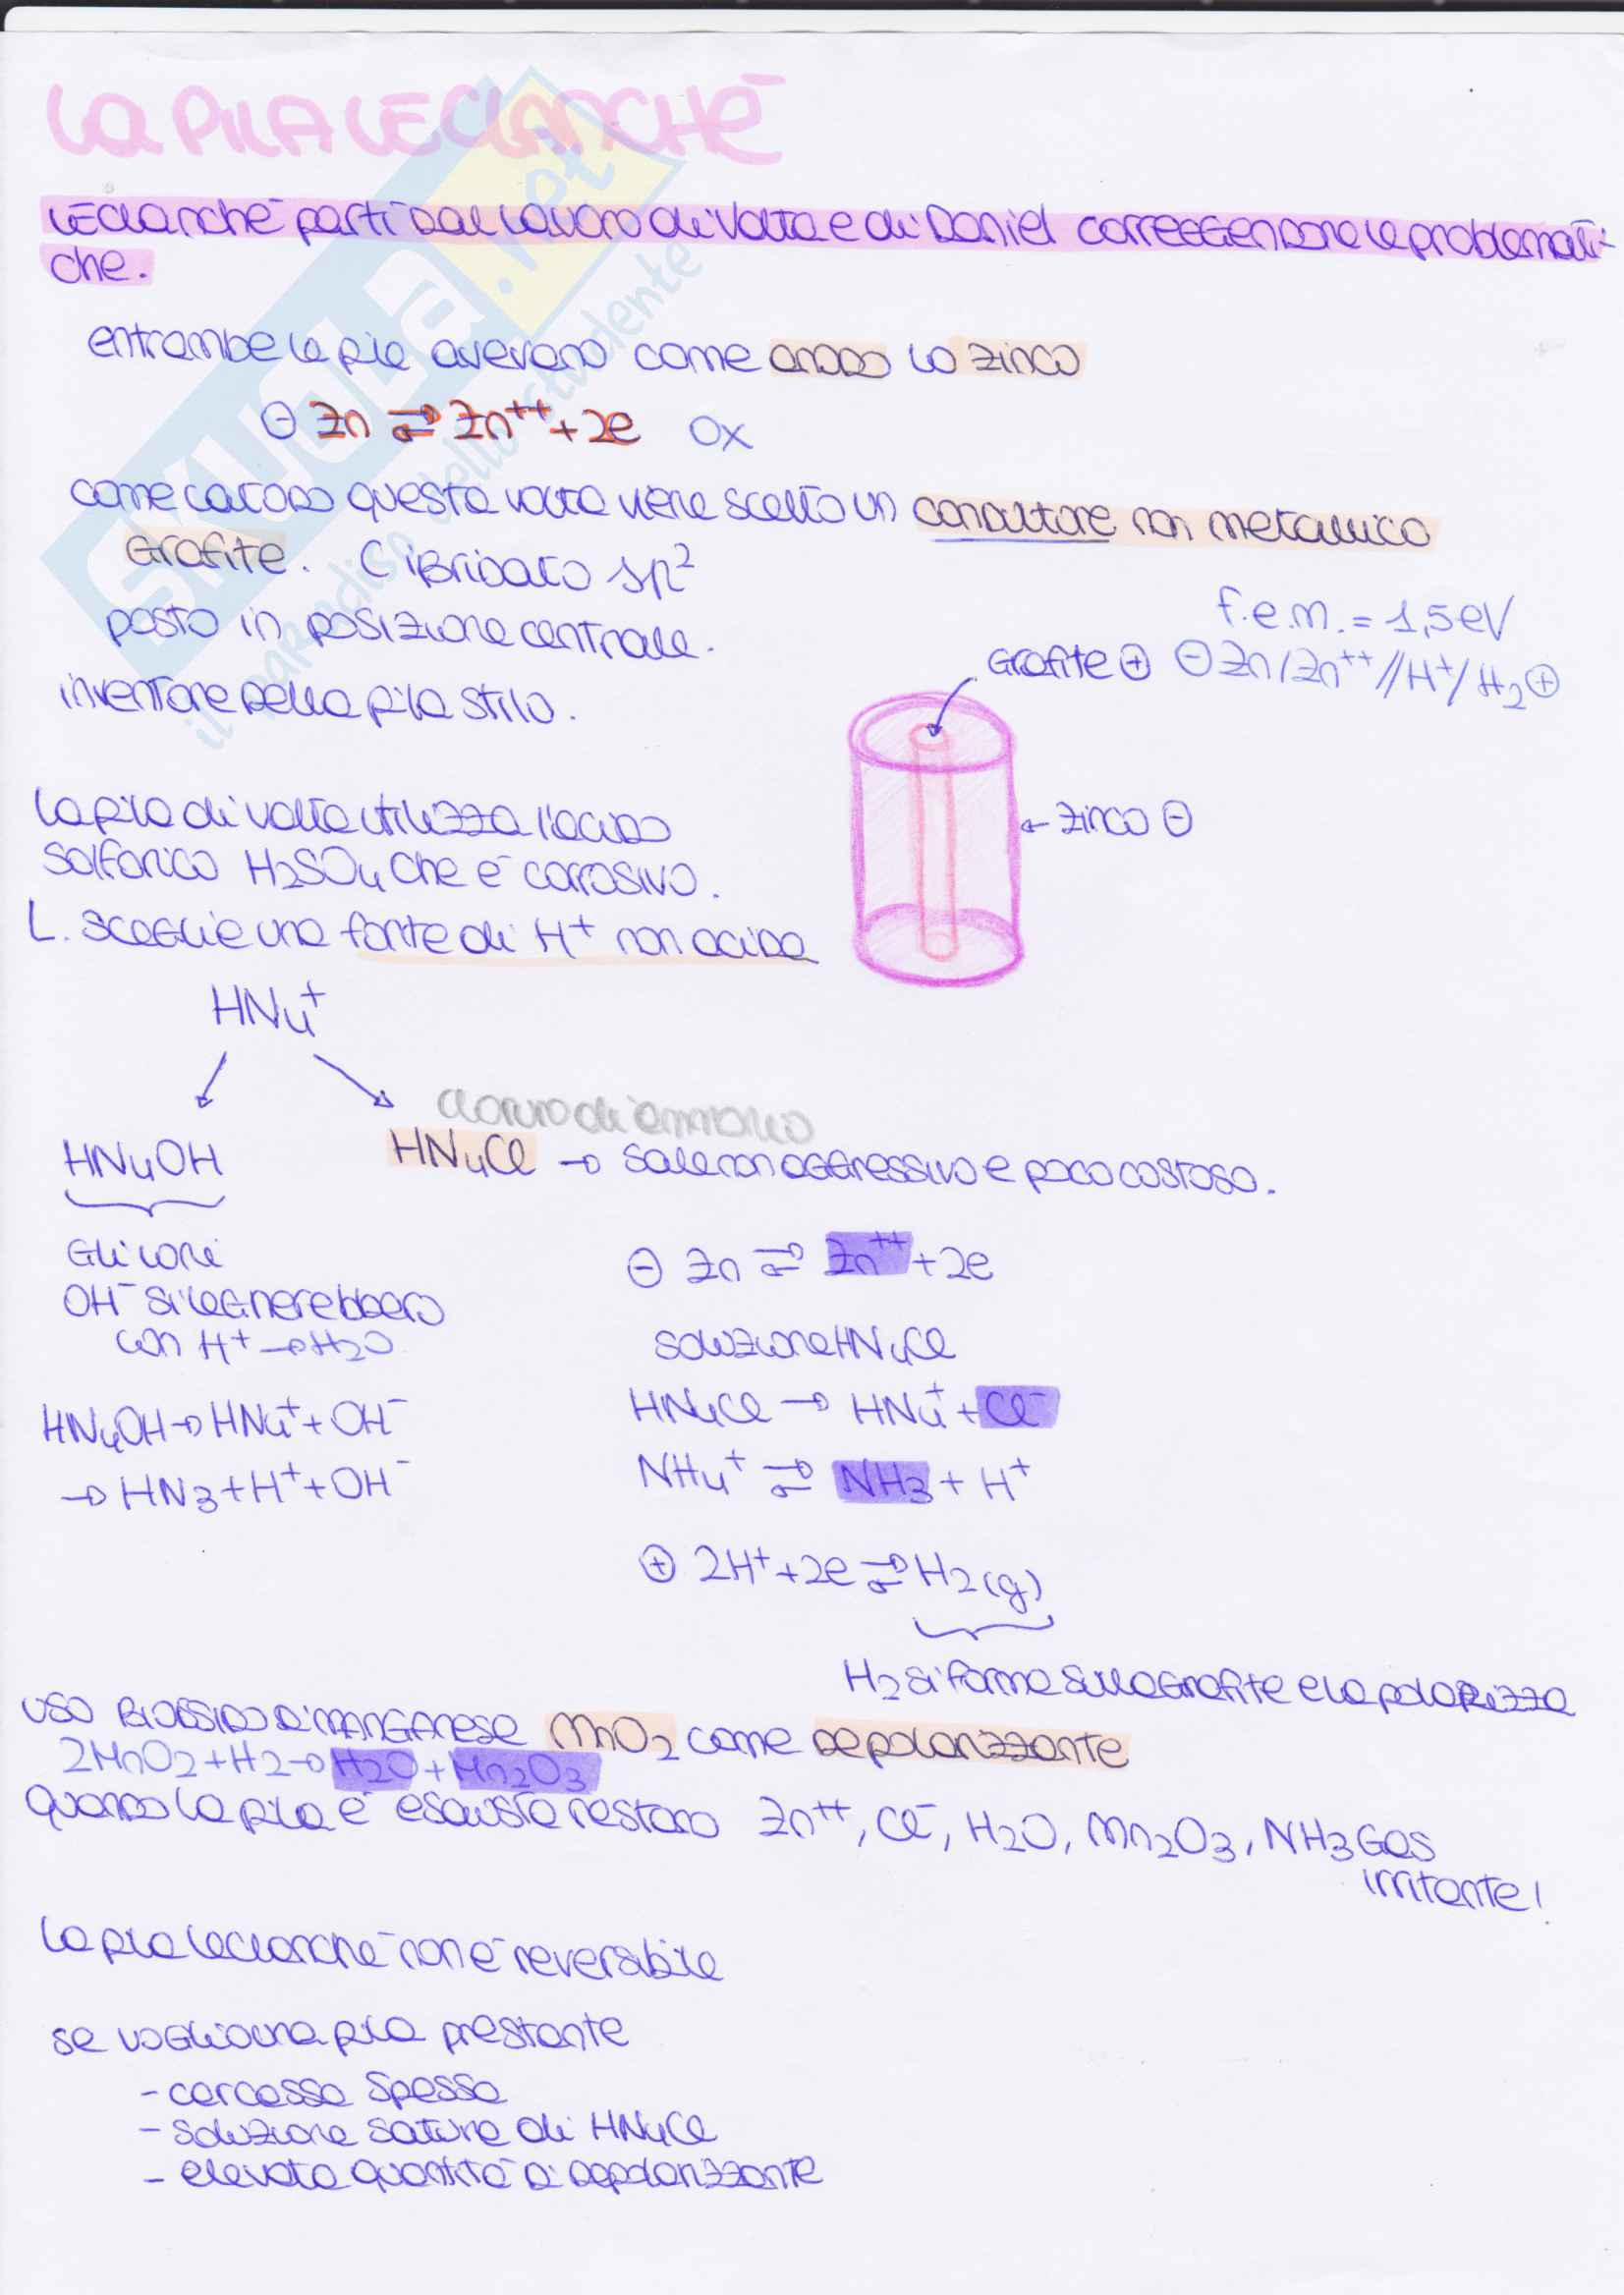 La PILA LECLANCHÈ
LEclanchè partì dal lavoro di Volta e di Daniel correggendone le problemati-
che.
entrambe le pile avevano come anodo lo zinco
⊖ Zn ⇄ Zn⁺⁺ + 2e Ox
come catodo questa volta viene scelto un conduttore non metallico
Grafite. C ibridato sp²
posto in posizione centrale.
inventore della pila stilo.
f.e.m. = 1,5 eV
Grafite ⊕ ⊖ Zn/Zn⁺⁺//H⁺/H₂ ⊕
← zinco ⊖
La pila di volta utilizza l'acido
solforico H₂SO₄ che è corrosivo.
L. sceglie una fonte di H⁺ non acida
HN₄⁺
cloruro di ammonio
HN₄OH HN₄Cl → sale non aggressivo e poco costoso.
Gli ioni
OH⁻ si legherebbero
con H⁺ → H₂O
HN₄OH → HN₄⁺ + OH⁻
→ HN₃ + H⁺ + OH⁻
⊖ Zn ⇄ Zn⁺⁺ + 2e
soluzione HN₄Cl
HN₄Cl → HN₄⁺ + Cl⁻
NH₄⁺ ⇄ NH₃ + H⁺
⊕ 2H⁺ + 2e ⇄ H₂(g)
H₂ si forma sulla Grafite e la polarizza
USO BIOSSIDO DI MANGANESE MnO₂ come depolarizzante
2MnO₂ + H₂ → H₂O + Mn₂O₃
quando la pila è esausta restano Zn⁺⁺, Cl⁻, H₂O, Mn₂O₃, NH₃ Gas
irritante!
La pila leclanchè non è reversibile
se voglio una pila prestante
- carcassa spessa
- soluzione satura di HN₄Cl
- elevata quantità di depolarizzante
SKUOLA.net
il paradiso dello studente